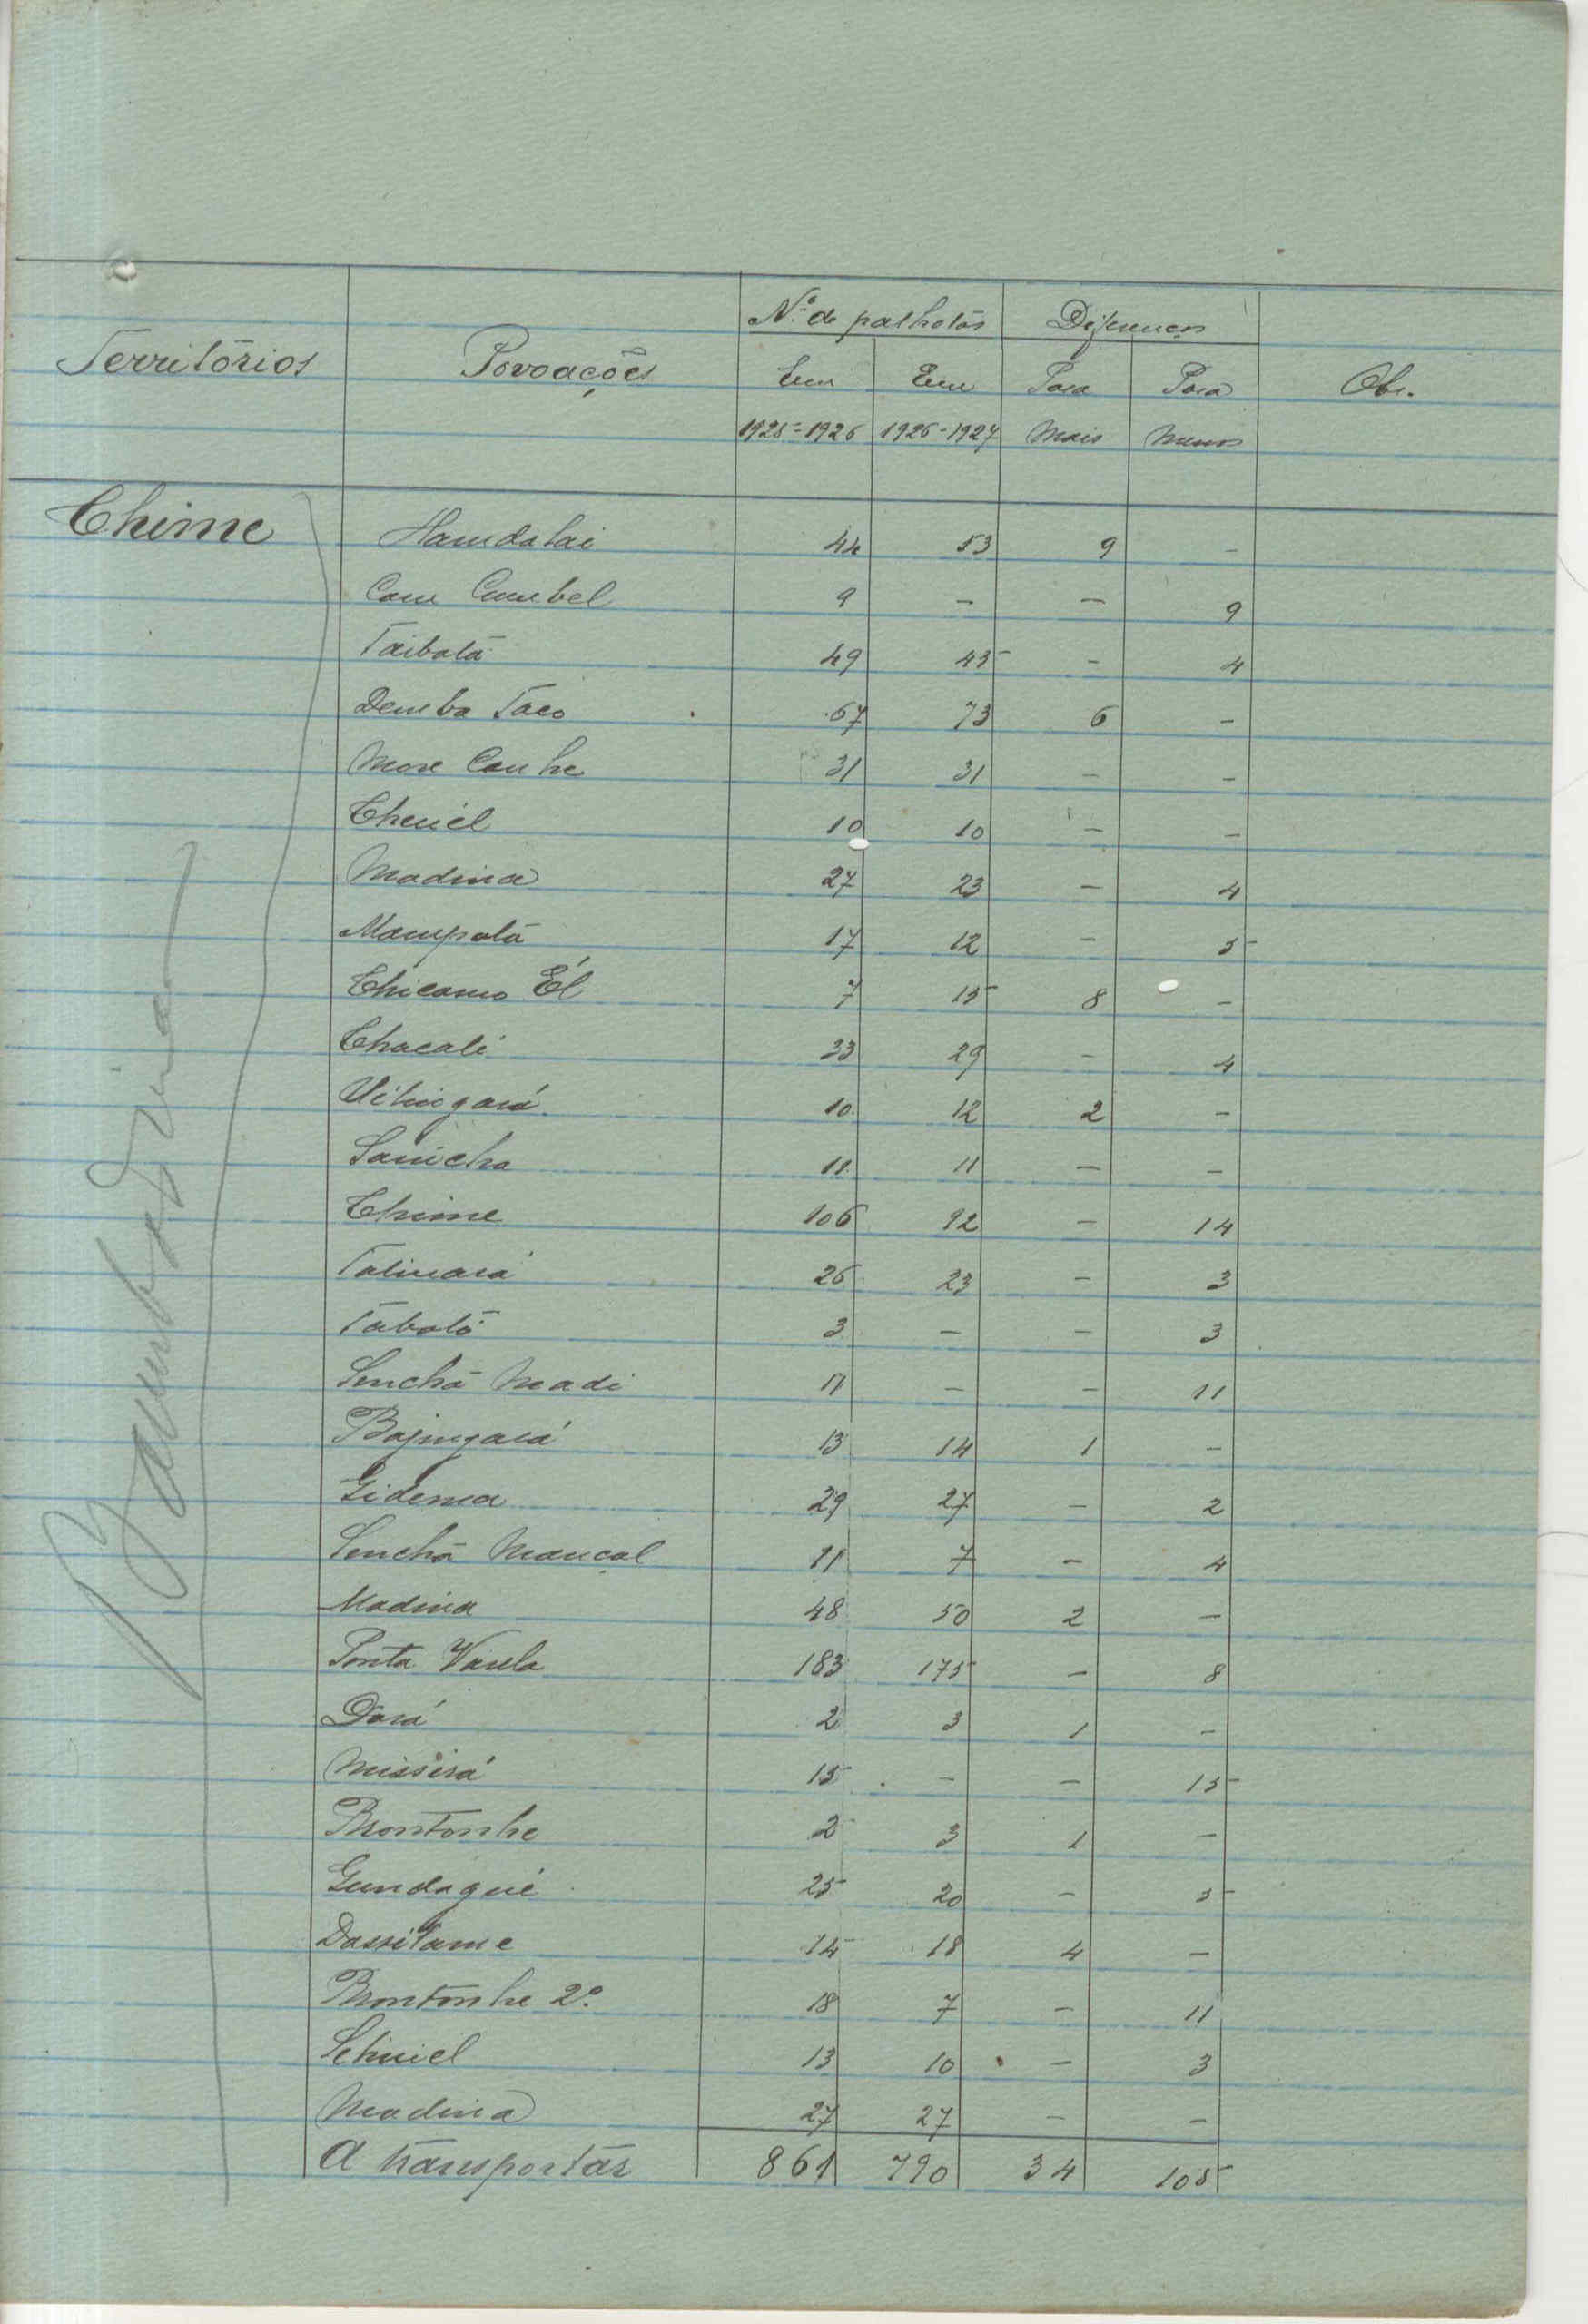 Territórios Povoações Nº de palhotas Diferenças Obs.
Em 1925-1926 Em 1926-1927 Para Mais Para menos
Chime Hamdalai 44 53 9 -
Cam Cumbel 9 - - 9
Taibatá 49 45 - 4
Demba Taco 67 73 6 -
More Canhe 31 31 - -
Cheuél 10 10 - -
Madina 27 23 - 4
Mampatá 17 12 - 5
Chicamo Él 7 15 8 -
Chacali 33 29 - 4
10 12 2 -
Sanicha 11 11 - -
Chime 106 92 - 14
Talinará 26 23 - 3
Tabatô 3 - - 3
Senchã Madi 11 - - 11
Bajingará 13 14 1 -
Gidema 29 27 - 2
Senchã Mançal 11 7 - 4
Madina 48 50 2 -
Ponta Varela 183 175 - 8
Dará 2 3 1 -
Missirá 15 - - 15
Brontonhe 2 3 1 -
Gundagué 25 20 - 5
Dassilame 14 18 4 -
Brontonhe 2º 18 7 - 11
13 10 - 3
Madina 27 27 - -
A transportar 861 790 34 105
Bambadinca